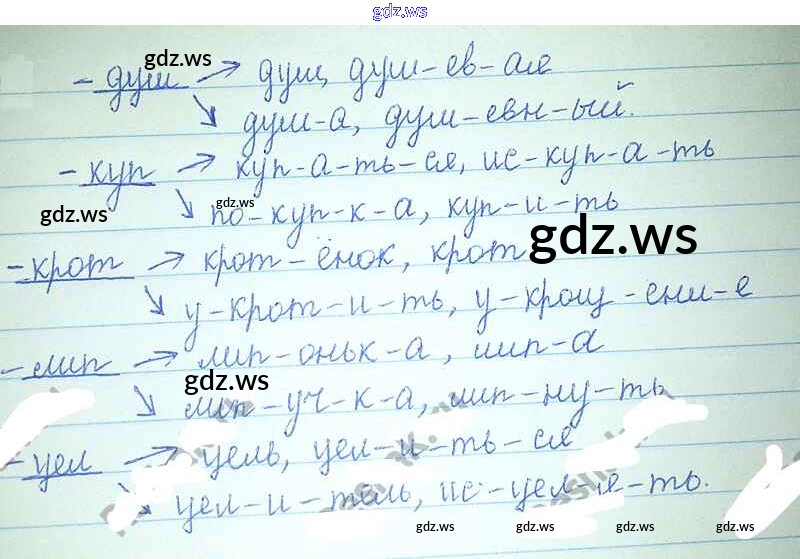 gdz.ws
- душ → душ, душ-ев-ая
gdz.ws
↘ душ-а, душ-евн-ый.
- куп → куп-а-ть-ся, ис-куп-а-ть
gdz.ws gdz.ws
↘ по-куп-к-а, куп-и-ть
- крот → крот-ёнок, крот gdz.ws
↘ у-крот-и-ть, у-крощ-ени-е
- лип → лип-оньк-а, лип-а
gdz.ws
↘ лип-уч-к-а, лип-ну-ть
- цел → цель, цел-и-ть-ся
↘ цел-и-тель, ис-цел-я-ть.
gdz.ws gdz.ws gdz.ws